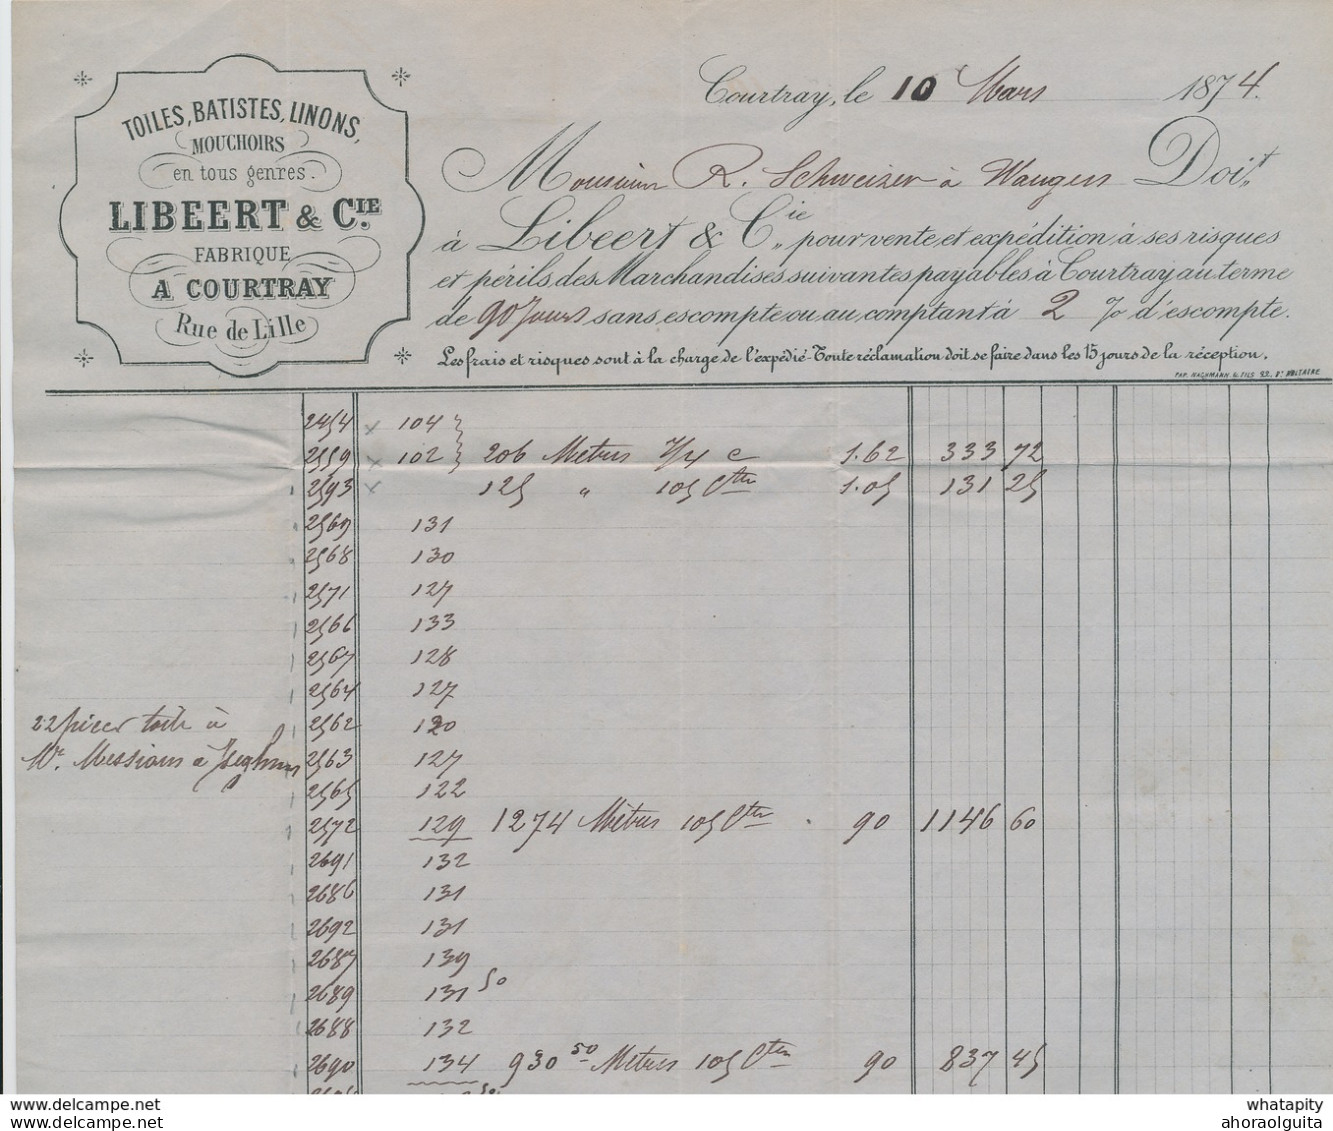 TOILES, BATISTES, LINONS,
MOUCHOIRS
en tous genres.
LIBEERT & CIE.
FABRIQUE
A COURTRAY
Rue de Lille
Courtray, le 10 Mars 1874.
Monsieur R. Schweizer à Doit
à Libeert & Cie, pour vente et expédition à ses risques
et périls des Marchandises suivantes payables à Courtray au terme
de 90 Jours sans escompte ou au comptant à 2 % d'escompte.
Les frais et risques sont à la charge de l'expédié - Toute réclamation doit se faire dans les 15 jours de la réception.
2454 x 104
2559 x 102 206 Metres 7/4 c 1.62 333 72
2593 x 125 " 105 Ctm 1.05 131 25
2569 131
2568 130
2571 127
2566 133
2567 128
2564 127
22 pièces toile à 2562 120
Mr. Messiaen à 2563 127
2565 122
2572 129 1274 Mètres 105 Ctm 90 1146 60
2691 132
2686 131
2692 131
2687 139
2689 131 50
2688 132
2690 134 930 50 Metres 105 Ctm 90 837 45
whatapity
ahoraolguita